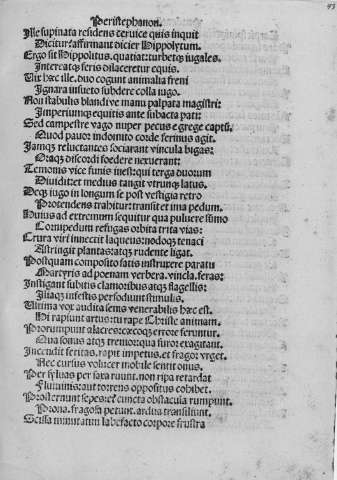 43
Peristephanon.
Ille supinata residens ceruice quis inquit
Dicitur: affirmant dicier Hippolytum.
Ergo sit Hippolitus. quatiat: turbetqʒ iugales.
Intereatqʒ feris dilaceretur equis.
Vix hæc ille. duo cogunt animalia freni
Ignara insueto subdere colla iugo.
Non stabulis blandive manu palpata magistri:
Imperiumqʒ equitis ante subacta pati:
Sed campestre vago nuper pecus e grege captū.
Quod pauor indomito corde ferinus agit.
Iamqʒ reluctantes sociarant vincula bigas:
Oraqʒ discordi foedere nexuerant:
Temonis vice funis inest: qui terga duorum
Diuidit: et medius tangit vtrunqʒ latus.
Deqʒ iugo in longum se post vestigia retro
Protendens trahitur: transit et ima pedum.
Huius ad extremum sequitur qua puluere sūmo
Cornipedum refugas orbita trita vias:
Crura viri innectit laqueus: nodoqʒ tenaci
Astringit plantas: atqʒ rudente ligat.
Postquam composito satis instruxere paratu
Martyris ad poenam verbera. vincla. feras:
Instigant subitis clamoribus atqʒ flagellis:
Iliaqʒ infestis perfodiunt stimulis.
Vltima vox audita senis venerabilis hæc est.
Hi rapiunt artus: tu rape Christe animam.
Prorumpunt alacres: cæcoqʒ errore feruntur.
Qua sonus atqʒ tremor: qua furor exagitant.
Incendit feritas. rapit impetus. et fragor vrget.
Nec cursus volucer mobile sentit onus.
Per syluas per saxa ruunt. non ripa retardat
Fluminis: aut torrens oppositus cohibet.
Prosternunt sepes: et cuncta obstacula rumpunt.
Prona. fragosa petunt. ardua transiliunt.
Scissa minutatim labefacto corpore frustra